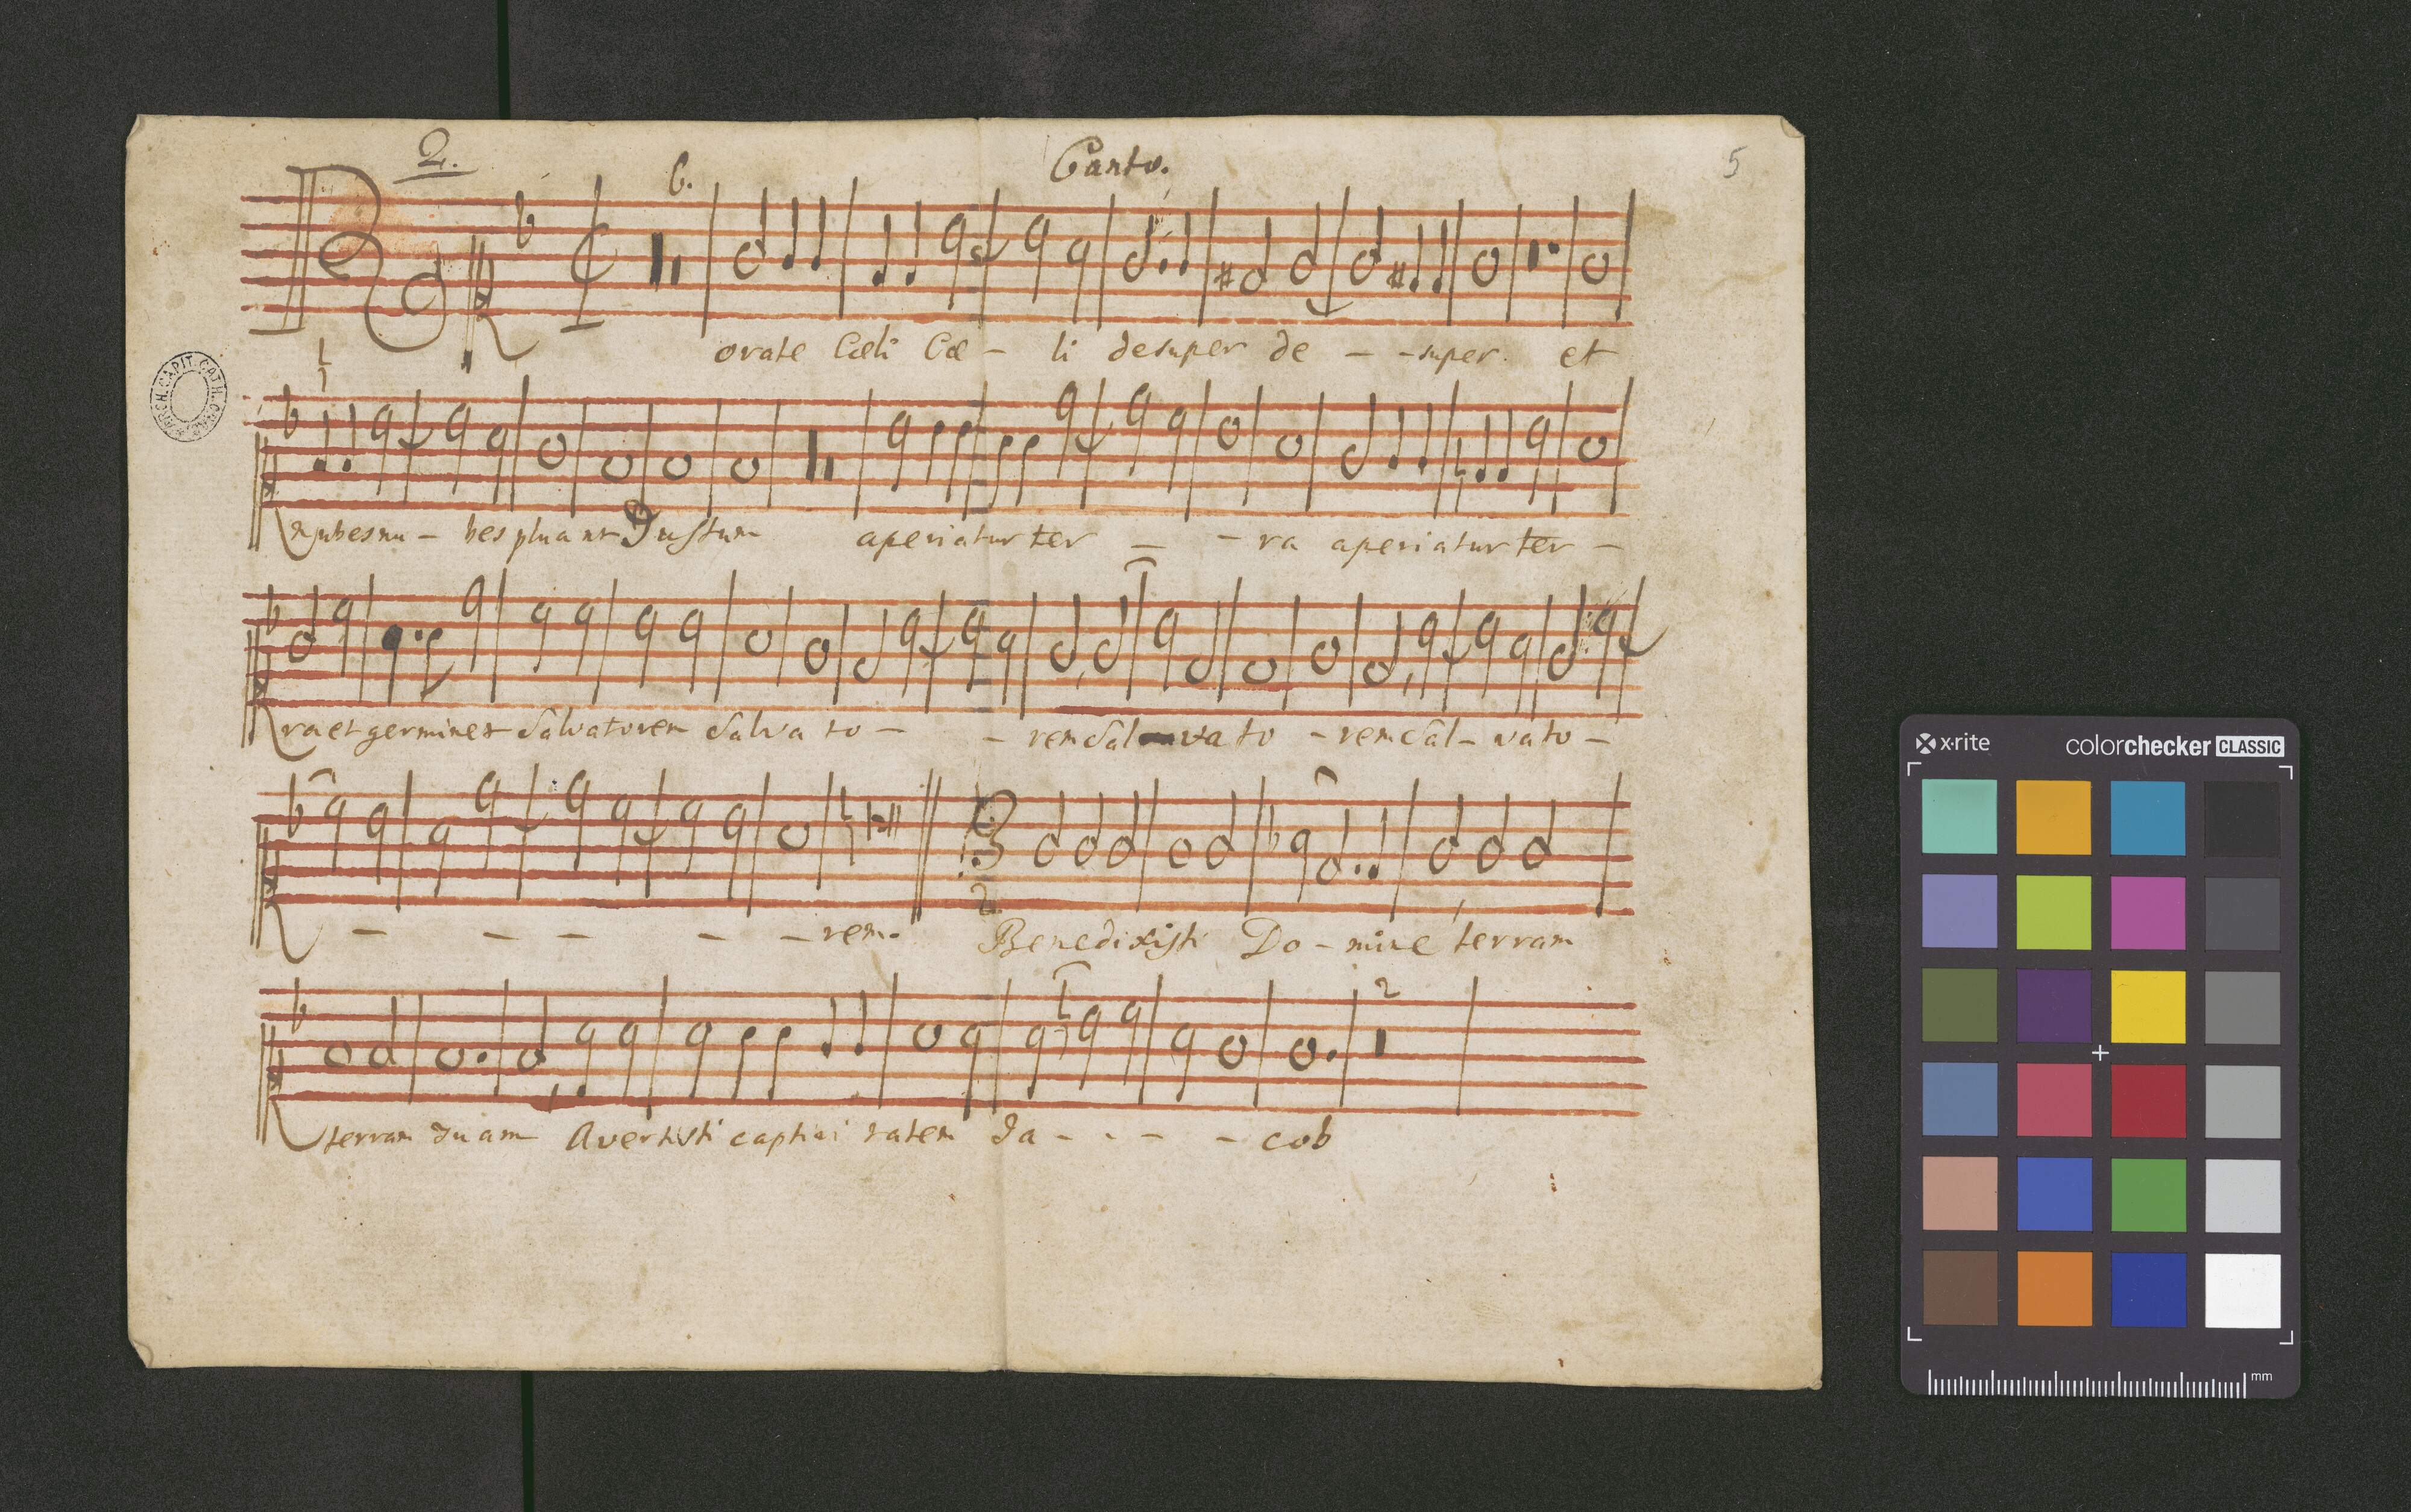 2. 6. Canto. 5
Rorate Cœli Cœ - li desuper de - - super. et
ARCH. CAPIT. CATH. CRAC.
nubes nu - bes pluant Justum aperiatur ter - - ra aperiatur ter -
ra et germinet Salvatorem Salva to - - rem Sal va to - rem Sal - va to -
- - - - - rem.
3
2
Benedixisti Do - mine terram
2
terram tuam Avertisti captivi tatem Ja - - - - cob
x·rite colorchecker CLASSIC
mm